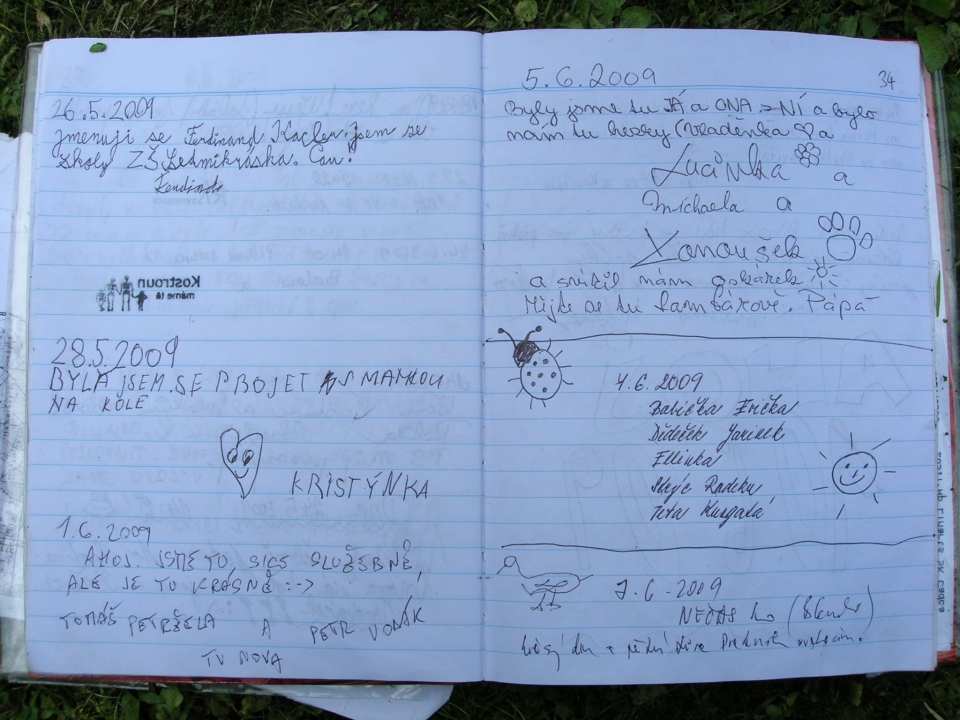 26.5.2009
jmenuji se Ferdinand Kacler. jsem se
školy ZŠ Sedmikráska. Čau!
Ferdinand
Kostroun
máme tě
28.5.2009
BYLA JSEM SE PROJET S MAMKOU
NA KOLE
KRISTÝNKA
1.6.2009
AHOJ. JSME TU, SICE SLUŽEBNĚ,
ALE JE TU KRÁSNĚ :->
TOMÁŠ PETRŽELA A PETR VODÁK
TV NOVA
34
5.6.2009
Byly jsme tu JÁ a ONA > NÍ a bylo
nám tu hezky (Vladěnka a
Lucinka a
Michaela a
Xanoušek
a snížil nám
Mějte se tu Pápá
4.6.2009
Babička Erička
Dědeček Jarínek
Ellinka
Strýc Radek
Teta
7.6.2009
NEČAS
a pěkný